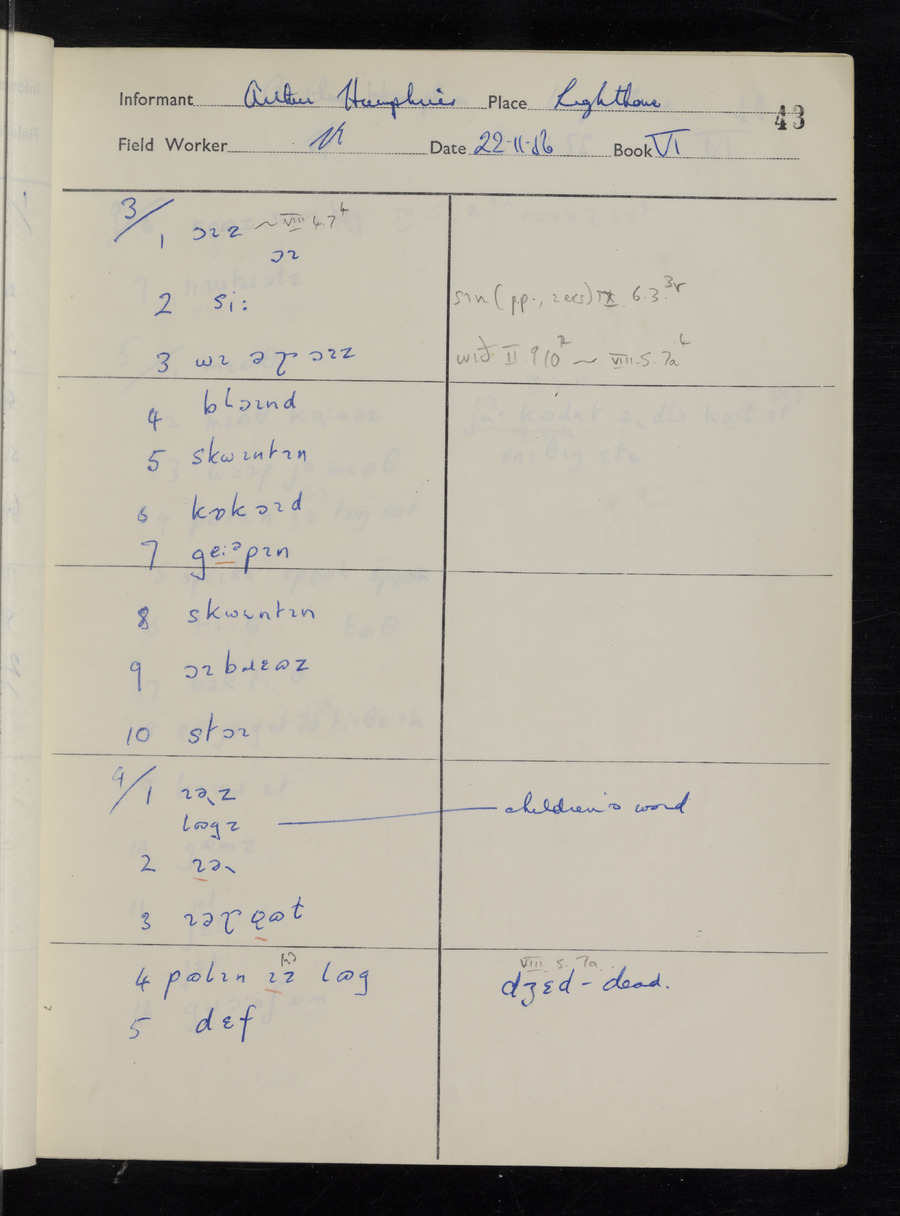 Informant Arthur Humphries Place Lighthorne 43
Field Worker Date 22·11·56 Book VI
3/
1 ɔɪz ~ VIII 4.7⁴
ɔɪ
2 si:
sɪn (pp., recs) IX 6.3.³ʳ
3 wɪ əɽ ɔɪz
wið II 9 10² ~ VIII.5.7a⁴
4 blɔɪnd
5 skwɪntɪn
6 kɒkɔɪd
7 geːᵊpɪn
8 skwɪntɪn
9 ɔɪbɹɛʊz
10 stɔɪ
4/
1 ɪəɽz
lʊgz
children's word
2 ɪəɽ
3
4 pʊlɪn ɪz lʊg
VIII 5. 7a
dʒɛd - dead.
5 dɛf